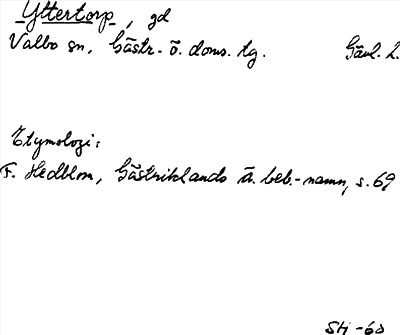 Yttertorp, gd
Valbo sn, Gästr. ö. doms. tg. Gävl. l.
Etymologi:
F. Hedblom, Gästriklands ä. beb.-namn, s. 69
SHj -60